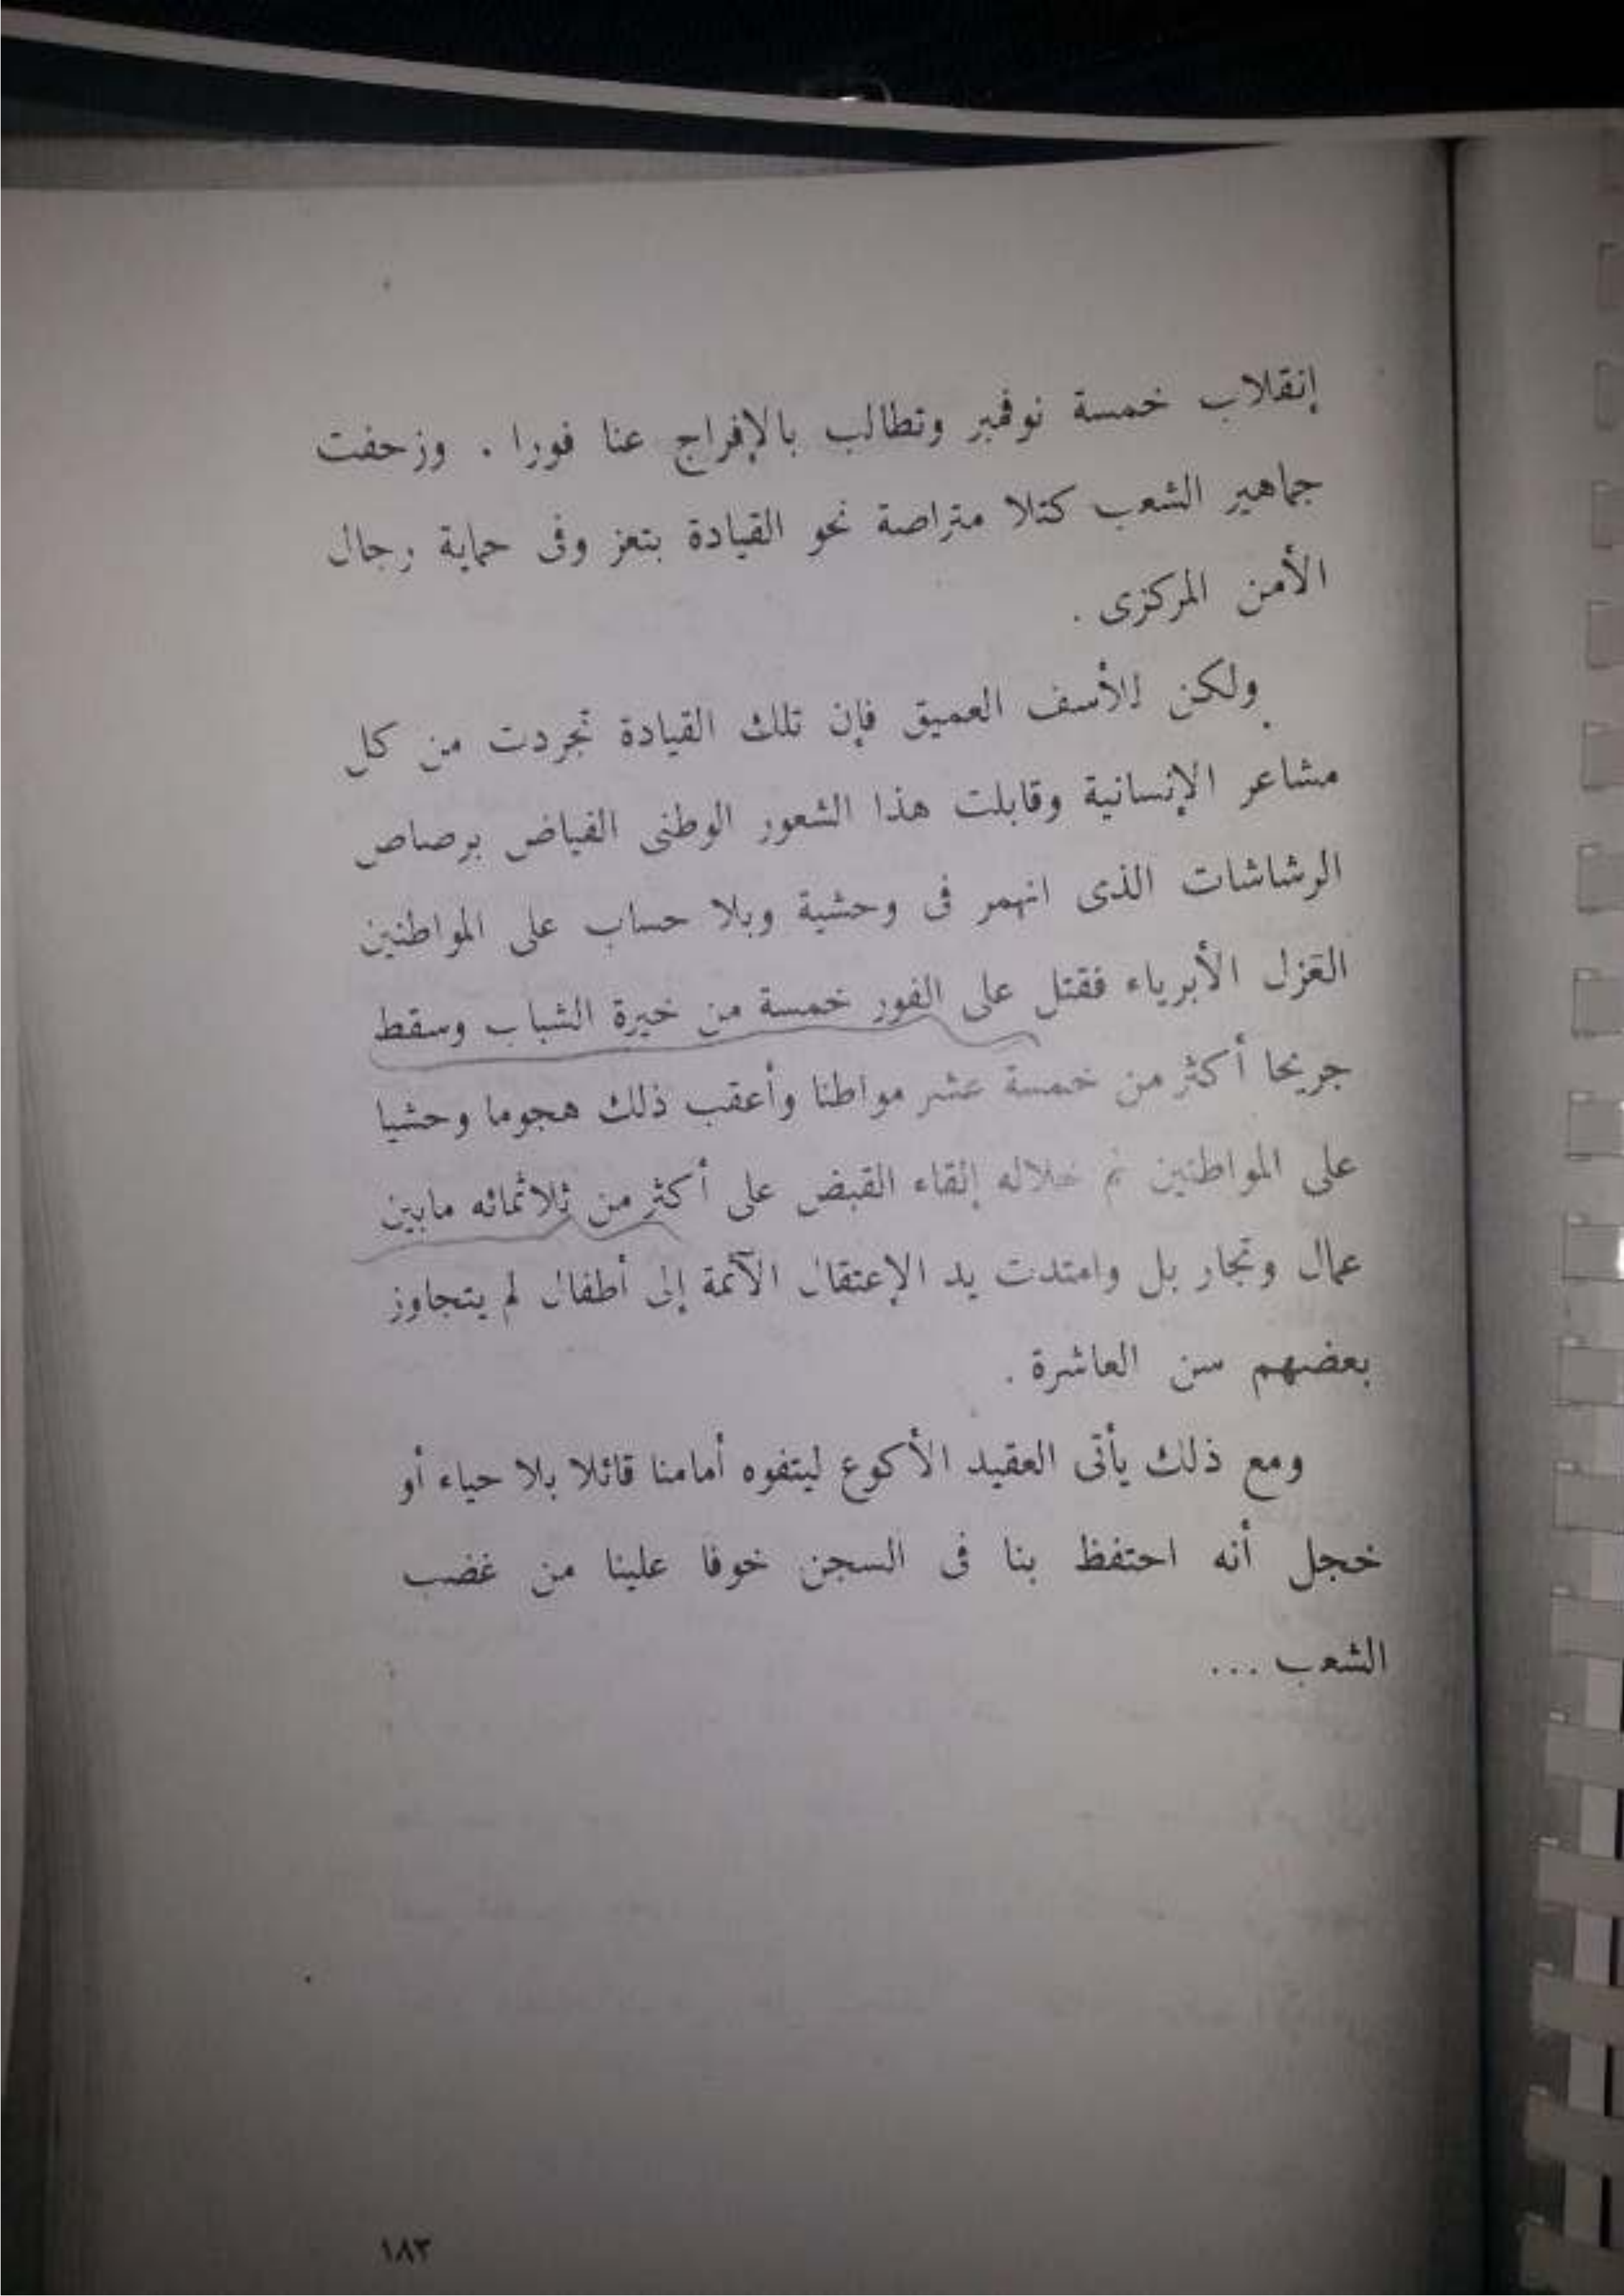 إنقلاب خمسة نوفمبر وتطالب بالإفراج عنا فورا . وزحفت
جماهير الشعب كتلا متراصة نحو القيادة بتعز وفى حماية رجال
الأمن المركزى .
ولكن للأسف العميق فإن تلك القيادة تجردت من كل
مشاعر الإنسانية وقابلت هذا الشعور الوطنى الفياض برصاص
الرشاشات الذى انهمر فى وحشية وبلا حساب على المواطنين
العزل الأبرياء فقتل على الفور خمسة من خيرة الشباب وسقط
جريحا أكثر من خمسة عشر مواطنا وأعقب ذلك هجوما وحشيا
على المواطنين تم خلاله إلقاء القبض على أكثر من ثلاثمائه مابين
عمال وتجار بل وامتدت يد الإعتقال الآثمة إلى أطفال لم يتجاوز
بعضهم سن العاشرة .
ومع ذلك يأتى العقيد الأكوع ليتفوه أمامنا قائلا بلا حياء أو
خجل أنه احتفظ بنا فى السجن خوفا علينا من غضب
الشعب ...
١٨٣